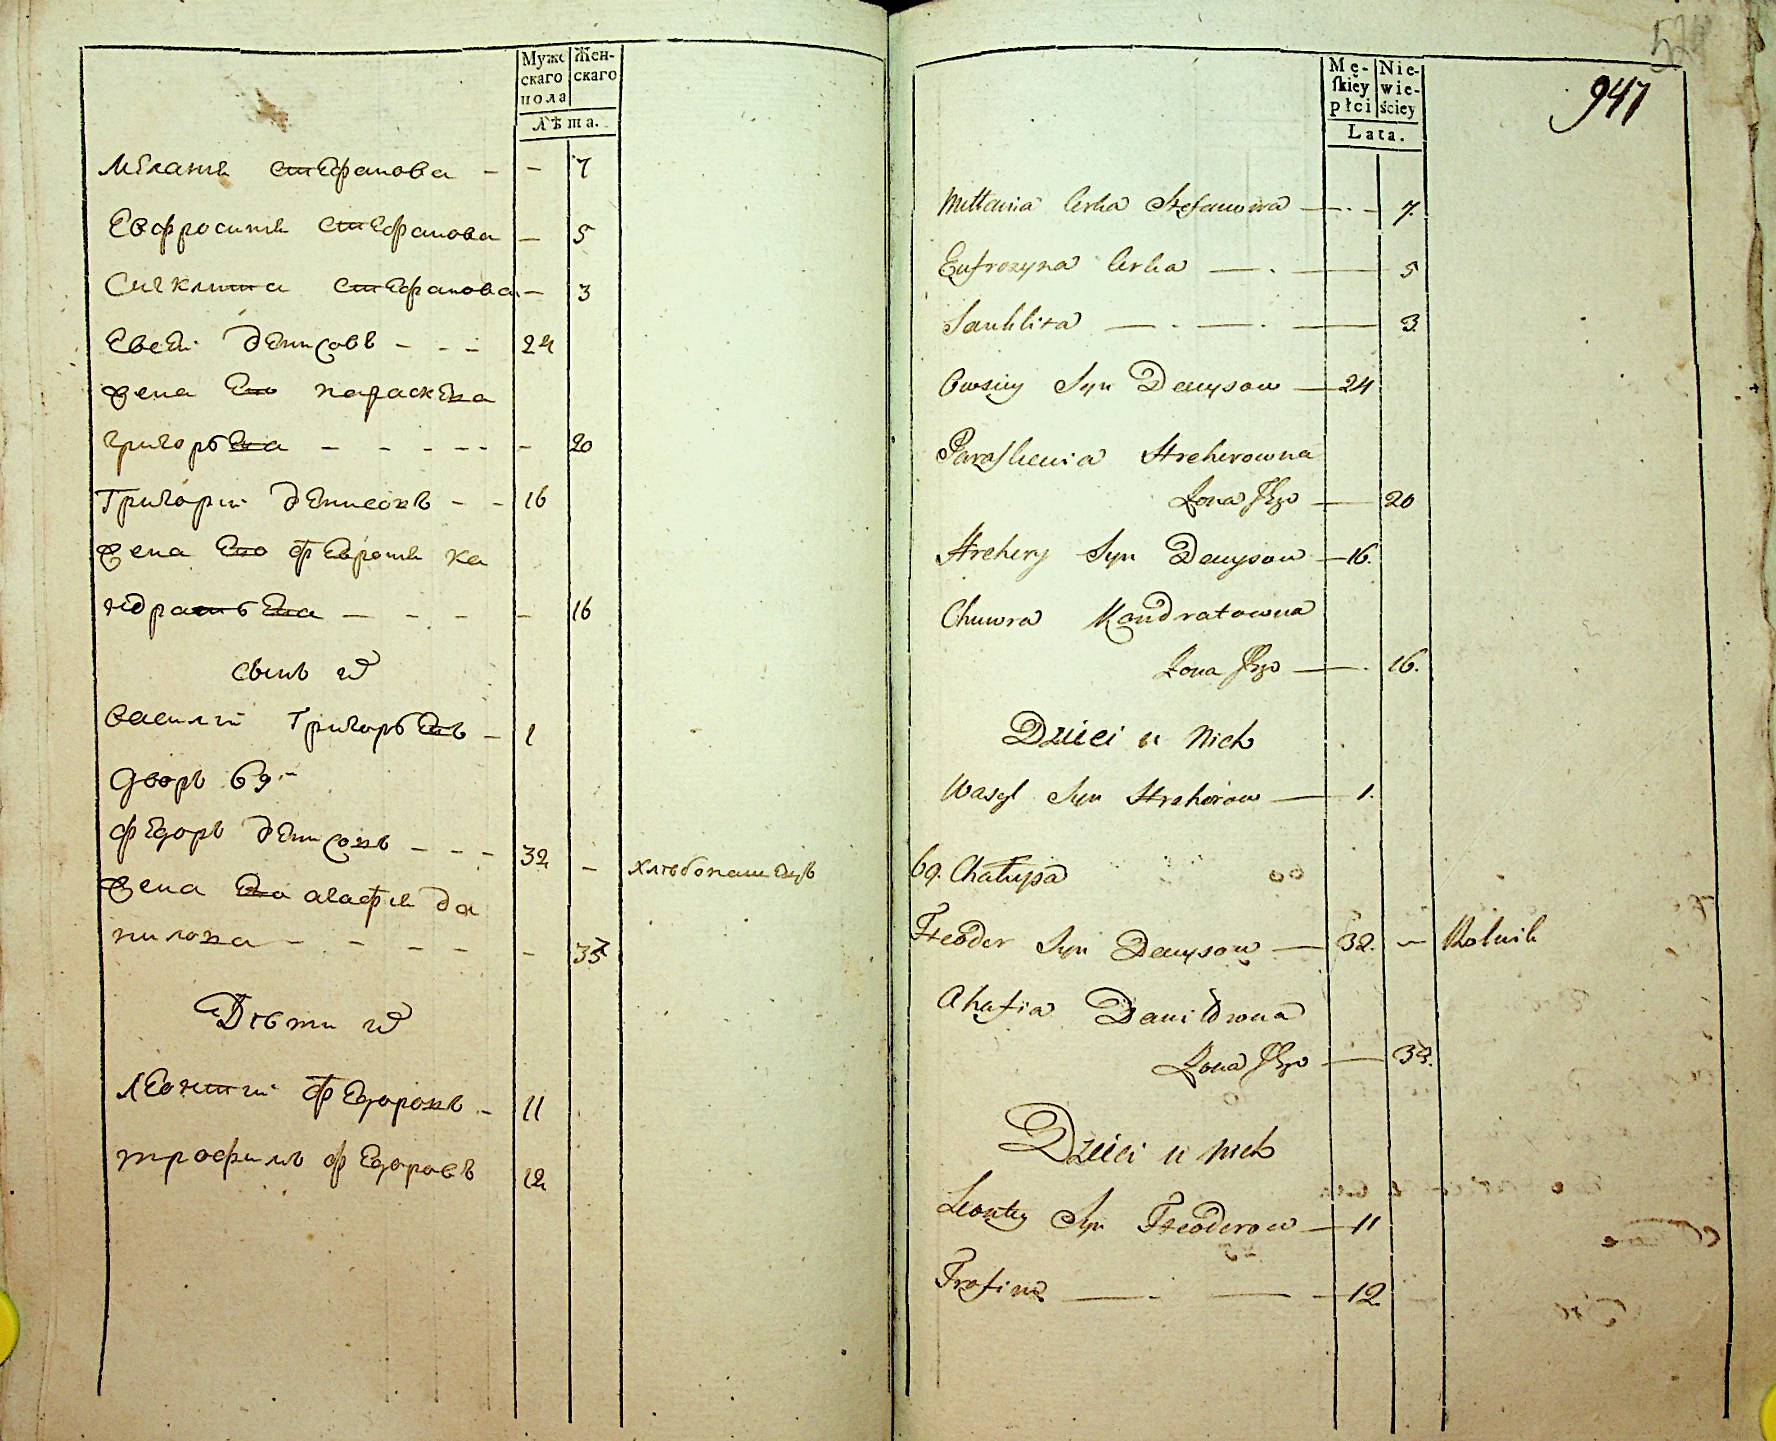 Муже
скаго
пола
Жен-
скаго
Лѣта.
Меланія Стефанова - - 7
Евфросинія Стефанова - 5
Сигклитіа Стефанова - 3
Евсей Денисовъ - - - 24
жена Его параскева
григорьева - - - - - - 20
Григорій Денисовъ - - 16
жена Его феврония ка
ндратьева - - - - - 16
сынъ их
василій Григорьевъ - 1
дворъ 69 -
федоръ Денисовъ - - - 32 - хлѣбопашецъ
жена Его агафія да
нилова - - - - - - 33
Дѣти их
леонтій федоровъ - 11
трофимъ федоровъ 12
947
Mę-
skięy
płci
Nie-
wie-
ściey
Lata.
Mellania Corka Stefanowa - 7.
Eufrozyna Corka - 5
Sanklita - 3.
Owsiey Syn Denysow - 24
Paraskewia Hrehorowna
Żona Jego - 20
Hrehory Syn Denysow - 16.
Chuwra Kondratowna
Żona Jego - 16.
Dzieci u Nich
Wasyl Syn Hrehorow - 1.
69. Chałupa
Fteodor Syn Denysow - 32. - Rolnik
Ahafia Daniłowna
Żona Jego - 33.
Dzieci u nich
Leontey Syn Fteodorow - 11
Trofim - 12